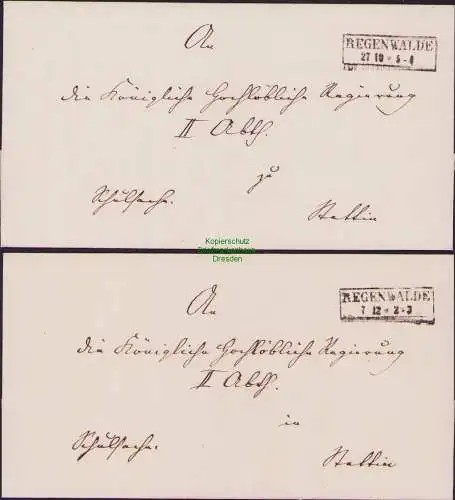 An
REGENWALDE
27 10 * 5-6
die Königliche Hochlöbliche Regierung
II Abth.
zu
Schulsache.
Stettin
Kopierschutz
Briefmarkenhaus
Dresden
An
REGENWALDE
7 12 * 2-3
die Königliche Hochlöbliche Regierung
II Abth.
in
Schulsache.
Stettin